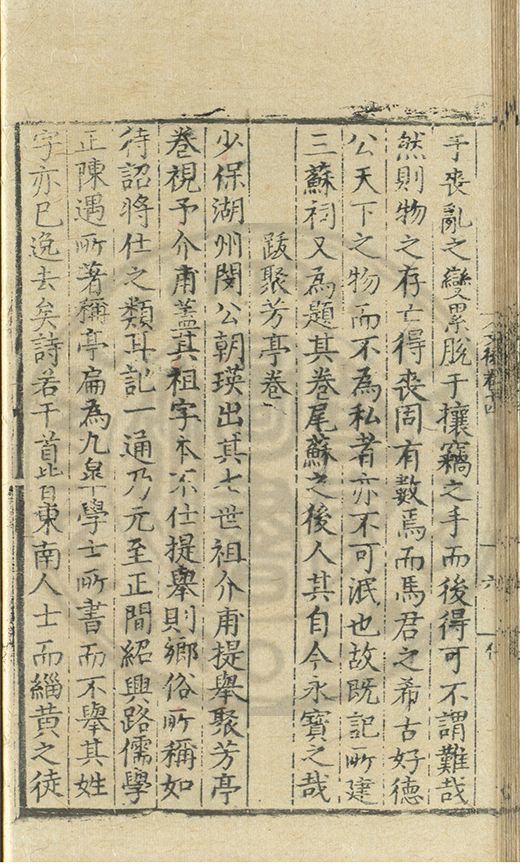 于喪亂之變累脫于攘竊之手而後得可不謂難哉
然則物之存亡得喪固有數焉而馬君之希古好德
公天下之物而不為私者亦不可泯也故既記所建
三蘇祠又為題其卷尾蘇之後人其自今永寶之哉
跋聚芳亭卷
少保湖州閔公朝瑛出其七世祖介甫提舉聚芳亭
卷視予介甫蓋其祖字本不仕提舉則鄉俗所稱如
待詔將仕之類耳記一通乃元至正間紹興路儒學
正陳遇所著稱亭扁為九皋學士所書而不舉其姓
字亦已逸去矣詩若干首皆東南人士而緇黃之徒